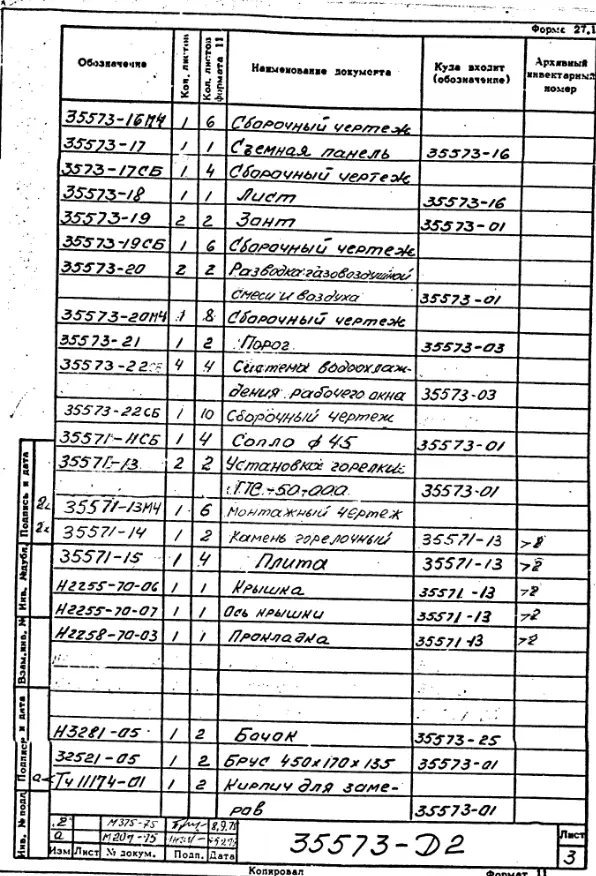 Форма 27.1
Обозначение Кол. листов Кол. листов формата 11 Наименование документа Куда входит (обозначение) Архивный инвентарный номер
35573-16МЧ 1 6 Сборочный чертеж
35573-17 1 1 Съемная панель 35573-16
35573-17СБ 1 4 Сборочный чертеж
35573-18 1 1 Лист 35573-16
35573-19 2 2 Зонт 35573-01
35573-19СБ 1 6 Сборочный чертеж
35573-20 2 2 Разводка газовоздушной
смеси и воздуха 35573-01
35573-20МЧ 1 8 Сборочный чертеж
35573-21 1 2 Порог 35573-03
35573-22СБ 4 4 Система водоохлаж-
дения рабочего окна 35573-03
35573-22СБ 1 10 Сборочный чертеж
35571-11СБ 1 4 Сопло ф 45 35573-01
35571-13 2 2 Установка горелки
ГПС-50-000 35573-01
35571-13МЧ 1 6 Монтажный чертеж
35571-14 1 2 Камень горелочный 35571-13
35571-15 1 4 Плита 35571-13
Н2255-70-06 1 1 Крышка 35571-13
Н2255-70-07 1 1 Ось крышки 35571-13
Н2258-70-03 1 1 Прокладка 35571-13
Н3281-05 1 2 Бачок 35573-25
32521-05 1 2 Брус 450х170х135 35573-01
ТЧ 11174-01 1 2 Кирпич для заме-
ров 35573-01
Подпись и дата
Инв. № дубл.
Взам. инв. №
Подпись и дата
Инв. № подл.
2 М375-75 8.9.75
а М207-75
Изм Лист № докум. Подп. Дата
35573-Д2
Лист
3
Копировал Формат 11